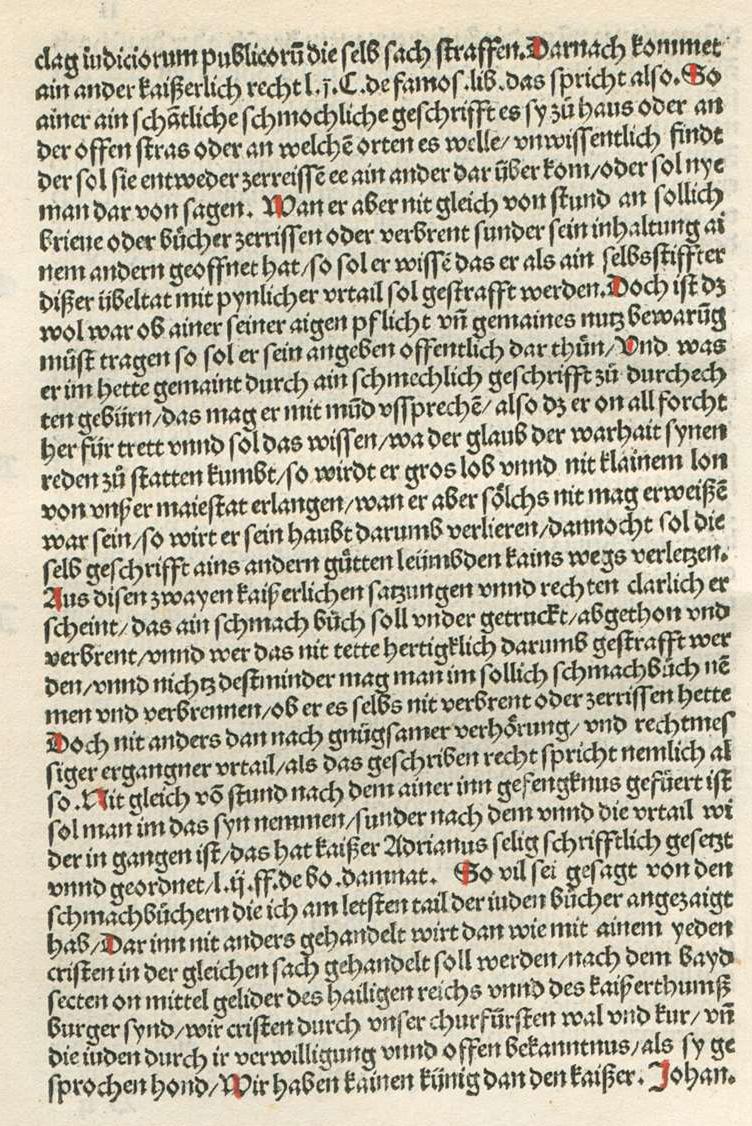 clag iudiciorum publicorū die selb sach straffen. Darnach kommet
ain ander kaißerlich recht l. j̄. C. de famos. lib. das spricht also. So
ainer ain schātliche schmochliche geschrifft es sy zů haus oder an
der offen stras oder an welchē orten es welle/ vnwissentlich findt
der sol sie entweder zerreissē ee ain ander dar ůber kom/oder sol nye
man dar von sagen. Wan er aber nit gleich von stund an sollich
brieue oder bůcher zerrissen oder verbrent sunder sein inhaltung ai
nem andern geoffnet hat/so sol er wissē das er als ain selbsstiffter
dißer übeltat mit pynlicher vrtail sol gestrafft werden. Doch ist dz
wol war ob ainer seiner aigen pflicht vñ gemaines nutz bewarūg
můst tragen so sol er sein angeben offentlich dar thůn/ Vnd was
er im hette gemaint durch ain schmechlich geschrifft zů durchech
ten gebürn/das mag er mit mūd vssprechē/ also dz er on all forcht
her für trett vnnd sol das wissen/wa der glaub der warhait synen
reden zů statten kumbt/so wirdt er gros lob vnnd nit klainem lon
von vnßer maiestat erlangen/wan er aber sölchs nit mag erweißē
war sein/so wirt er sein haubt darumb verlieren/dannocht sol die
selb geschrifft ains andern gůtten leümbden kains wegs verletzen.
Aus disen zwayen kaißerlichen satzungen vnnd rechten clarlich er
scheint/das ain schmach bůch soll vnder getruckt/abgethon vnd
verbrent/vnnd wer das nit tette hertigklich darumb gestrafft wer
den/vnnd nichtz destminder mag man im sollich schmachbůch nē
men vnd verbrennen/ob er es selbs nit verbrent oder zerrissen hette
Doch nit anders dan nach gnůgsamer verhörung/ vnd rechtmes
siger ergangner vrtail/als das geschriben recht spricht nemlich al
so. Nit gleich vō stund nach dem ainer inn gefengknus gefüert ist
sol man im das syn nemmen/sunder nach dem vnnd die vrtail wi
der in gangen ist/das hat kaißer Adrianus selig schrifftlich gesetzt
vnnd geordnet/l. ij. ff. de bo. damnat. So vil sei gesagt von den
schmachbůchern die ich am letsten tail der iuden bůcher angezaigt
hab/Dar inn nit anders gehandelt wirt dan wie mit ainem yeden
cristen in der gleichen sach gehandelt soll werden/nach dem bayd
secten on mittel gelider des hailigen reichs vnnd des kaißerthumß
burger synd/wir cristen durch vnser churfürsten wal vnd kur/ vñ
die iuden durch ir verwilligung vnnd offen bekanntnus/als sy ge
sprochen hond/Wir haben kainen künig dan den kaißer. Johan.